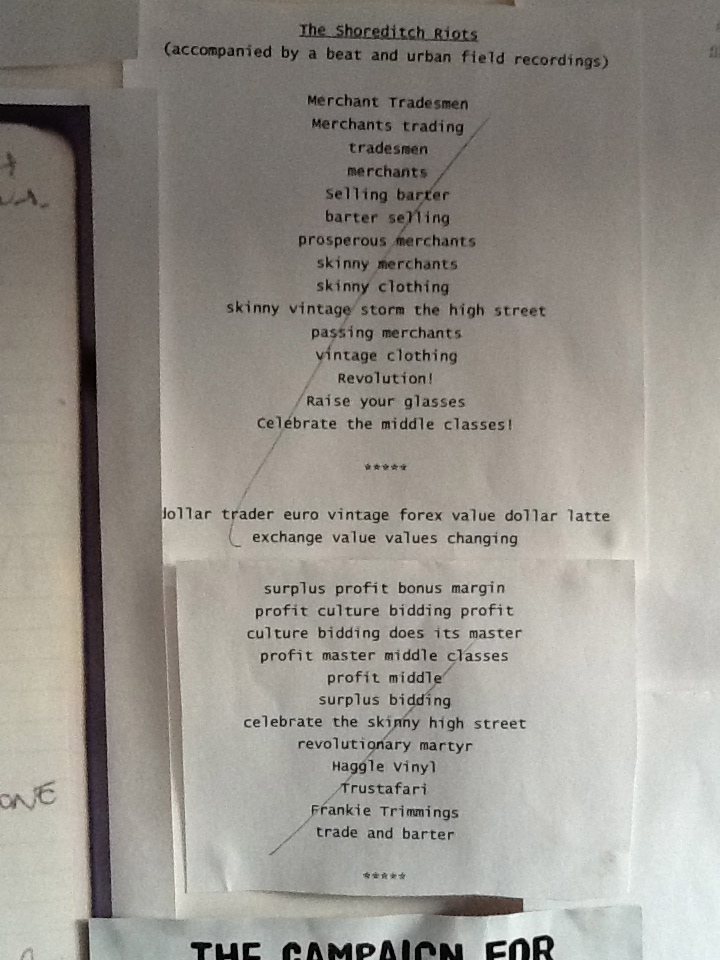 The Shoreditch Riots
(accompanied by a beat and urban field recordings)
Merchant Tradesmen
Merchants trading
tradesmen
merchants
Selling barter
barter selling
prosperous merchants
skinny merchants
skinny clothing
skinny vintage storm the high street
passing merchants
vintage clothing
Revolution!
Raise your glasses
Celebrate the middle classes!
*****
dollar trader euro vintage forex value dollar latte
exchange value values changing
surplus profit bonus margin
profit culture bidding profit
culture bidding does its master
profit master middle classes
profit middle
surplus bidding
celebrate the skinny high street
revolutionary martyr
Haggle Vinyl
Trustafari
Frankie Trimmings
trade and barter
*****
THE CAMPAIGN FOR